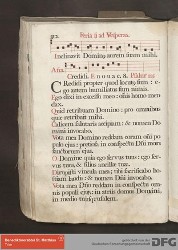 Feria ii ad Vesperas.
Inclinavit Dominus aurem suam mihi.
Credidi. E u o u a e.
Credidi propter quod locutus sum : e-
go autem humiliatus sum nimis.
Ego dixi in excessu meo : omnis homo men-
dax.
Quid retribuam Domino : pro omnibus
quæ retribuit mihi.
Calicem salutaris accipiam : & nomen Do-
mini invocabo.
Vota mea Domino reddam coram omni po-
pulo ejus : pretiosa in conspectu Dñi mors
sanctorum ejus.
O Domine quia ego servus tuus : ego ser-
vus tuus, & filius ancillæ tuæ.
Dirupisti vincula mea : tibi sacrificabo ho-
stiam laudis : & nomen Dñi invocabo.
Vota mea Dño reddam in conspectu om-
nis populi ejus : in atriis domus Domini,
in medio tui Jerusalem.
Benediktinerabtei St. Matthias
Trier
DFG